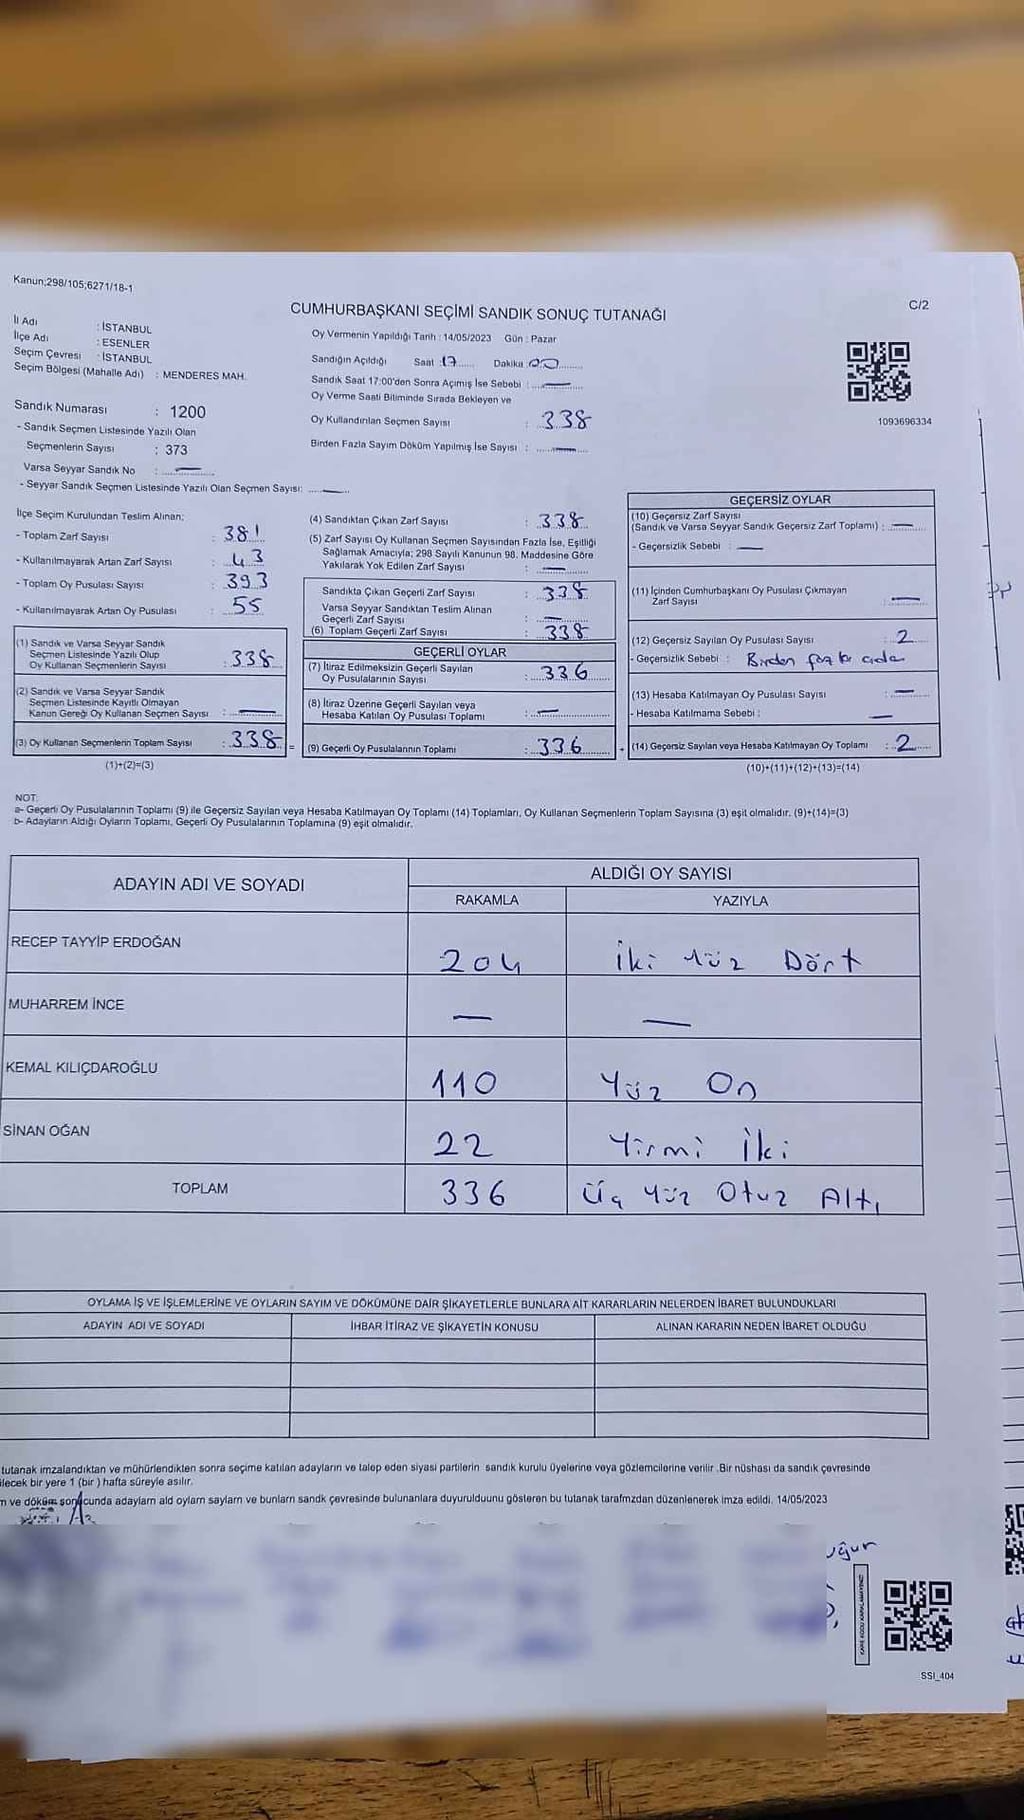 Kanun;298/105;6271/18-1
C/2
CUMHURBAŞKANI SEÇİMİ SANDIK SONUÇ TUTANAĞI
İl Adı : İSTANBUL
İlçe Adı : ESENLER
Seçim Çevresi : İSTANBUL
Seçim Bölgesi (Mahalle Adı) : MENDERES MAH.
Sandık Numarası : 1200
- Sandık Seçmen Listesinde Yazılı Olan
Seçmenlerin Sayısı : 373
Varsa Seyyar Sandık No : —
- Seyyar Sandık Seçmen Listesinde Yazılı Olan Seçmen Sayısı: —
Oy Vermenin Yapıldığı Tarih : 14/05/2023 Gün : Pazar
Sandığın Açıldığı Saat : 17 Dakika : 00
Sandık Saat 17:00'den Sonra Açımış İse Sebebi : —
Oy Verme Saati Bitiminde Sırada Bekleyen ve
Oy Kullandırılan Seçmen Sayısı : 338
Birden Fazla Sayım Döküm Yapılmış İse Sayısı : —
1093696334
İlçe Seçim Kurulundan Teslim Alınan;
- Toplam Zarf Sayısı : 381
- Kullanılmayarak Artan Zarf Sayısı : 43
- Toplam Oy Pusulası Sayısı : 393
- Kullanılmayarak Artan Oy Pusulası : 55
(1) Sandık ve Varsa Seyyar Sandık
Seçmen Listesinde Yazılı Olup
Oy Kullanan Seçmenlerin Sayısı : 338
(2) Sandık ve Varsa Seyyar Sandık
Seçmen Listesinde Kayıtlı Olmayan
Kanun Gereği Oy Kullanan Seçmen Sayısı : —
(3) Oy Kullanan Seçmenlerin Toplam Sayısı : 338 =
(1)+(2)=(3)
(4) Sandıktan Çıkan Zarf Sayısı : 338
(5) Zarf Sayısı Oy Kullanan Seçmen Sayısından Fazla İse, Eşitliği
Sağlamak Amacıyla; 298 Sayılı Kanunun 98. Maddesine Göre
Yakılarak Yok Edilen Zarf Sayısı : —
Sandıkta Çıkan Geçerli Zarf Sayısı : 338
Varsa Seyyar Sandıktan Teslim Alınan
Geçerli Zarf Sayısı : —
(6) Toplam Geçerli Zarf Sayısı : 338
GEÇERLİ OYLAR
(7) İtiraz Edilmeksizin Geçerli Sayılan
Oy Pusulalarının Sayısı : 336
(8) İtiraz Üzerine Geçerli Sayılan veya
Hesaba Katılan Oy Pusulası Toplamı : —
(9) Geçerli Oy Pusulalarının Toplamı : 336 +
GEÇERSİZ OYLAR
(10) Geçersiz Zarf Sayısı
(Sandık ve Varsa Seyyar Sandık Geçersiz Zarf Toplamı) : —
- Geçersizlik Sebebi : —
(11) İçinden Cumhurbaşkanı Oy Pusulası Çıkmayan
Zarf Sayısı : —
(12) Geçersiz Sayılan Oy Pusulası Sayısı : 2
- Geçersizlik Sebebi : Birden
(13) Hesaba Katılmayan Oy Pusulası Sayısı : —
- Hesaba Katılmama Sebebi : —
(14) Geçersiz Sayılan veya Hesaba Katılmayan Oy Toplamı : 2
(10)+(11)+(12)+(13)=(14)
NOT:
a- Geçerli Oy Pusulalarının Toplamı (9) ile Geçersiz Sayılan veya Hesaba Katılmayan Oy Toplamı (14) Toplamları, Oy Kullanan Seçmenlerin Toplam Sayısına (3) eşit olmalıdır. (9)+(14)=(3)
b- Adayların Aldığı Oyların Toplamı, Geçerli Oy Pusulalarının Toplamına (9) eşit olmalıdır.
ADAYIN ADI VE SOYADI ALDIĞI OY SAYISI
RAKAMLA YAZIYLA
RECEP TAYYİP ERDOĞAN 204 İki Yüz Dört
MUHARREM İNCE — —
KEMAL KILIÇDAROĞLU 110 Yüz On
SİNAN OĞAN 22 Yirmi İki
TOPLAM 336 Üç Yüz Otuz Altı
OYLAMA İŞ VE İŞLEMLERİNE VE OYLARIN SAYIM VE DÖKÜMÜNE DAİR ŞİKAYETLERLE BUNLARA AİT KARARLARIN NELERDEN İBARET BULUNDUKLARI
ADAYIN ADI VE SOYADI İHBAR İTİRAZ VE ŞİKAYETİN KONUSU ALINAN KARARIN NEDEN İBARET OLDUĞU
tutanak imzalandıktan ve mühürlendikten sonra seçime katılan adayların ve talep eden siyasi partilerin sandık kurulu üyelerine veya gözlemcilerine verilir .Bir nüshası da sandık çevresinde
ilecek bir yere 1 (bir ) hafta süreyle asılır.
m ve döküm sonucunda adaylarn ald oylarn saylarn ve bunlarn sandk çevresinde bulunanlara duyurulduunu gösteren bu tutanak tarafmzdan düzenlenerek imza edildi. 14/05/2023
KARE KODU KARALAMAYINIZ!
SSI_404